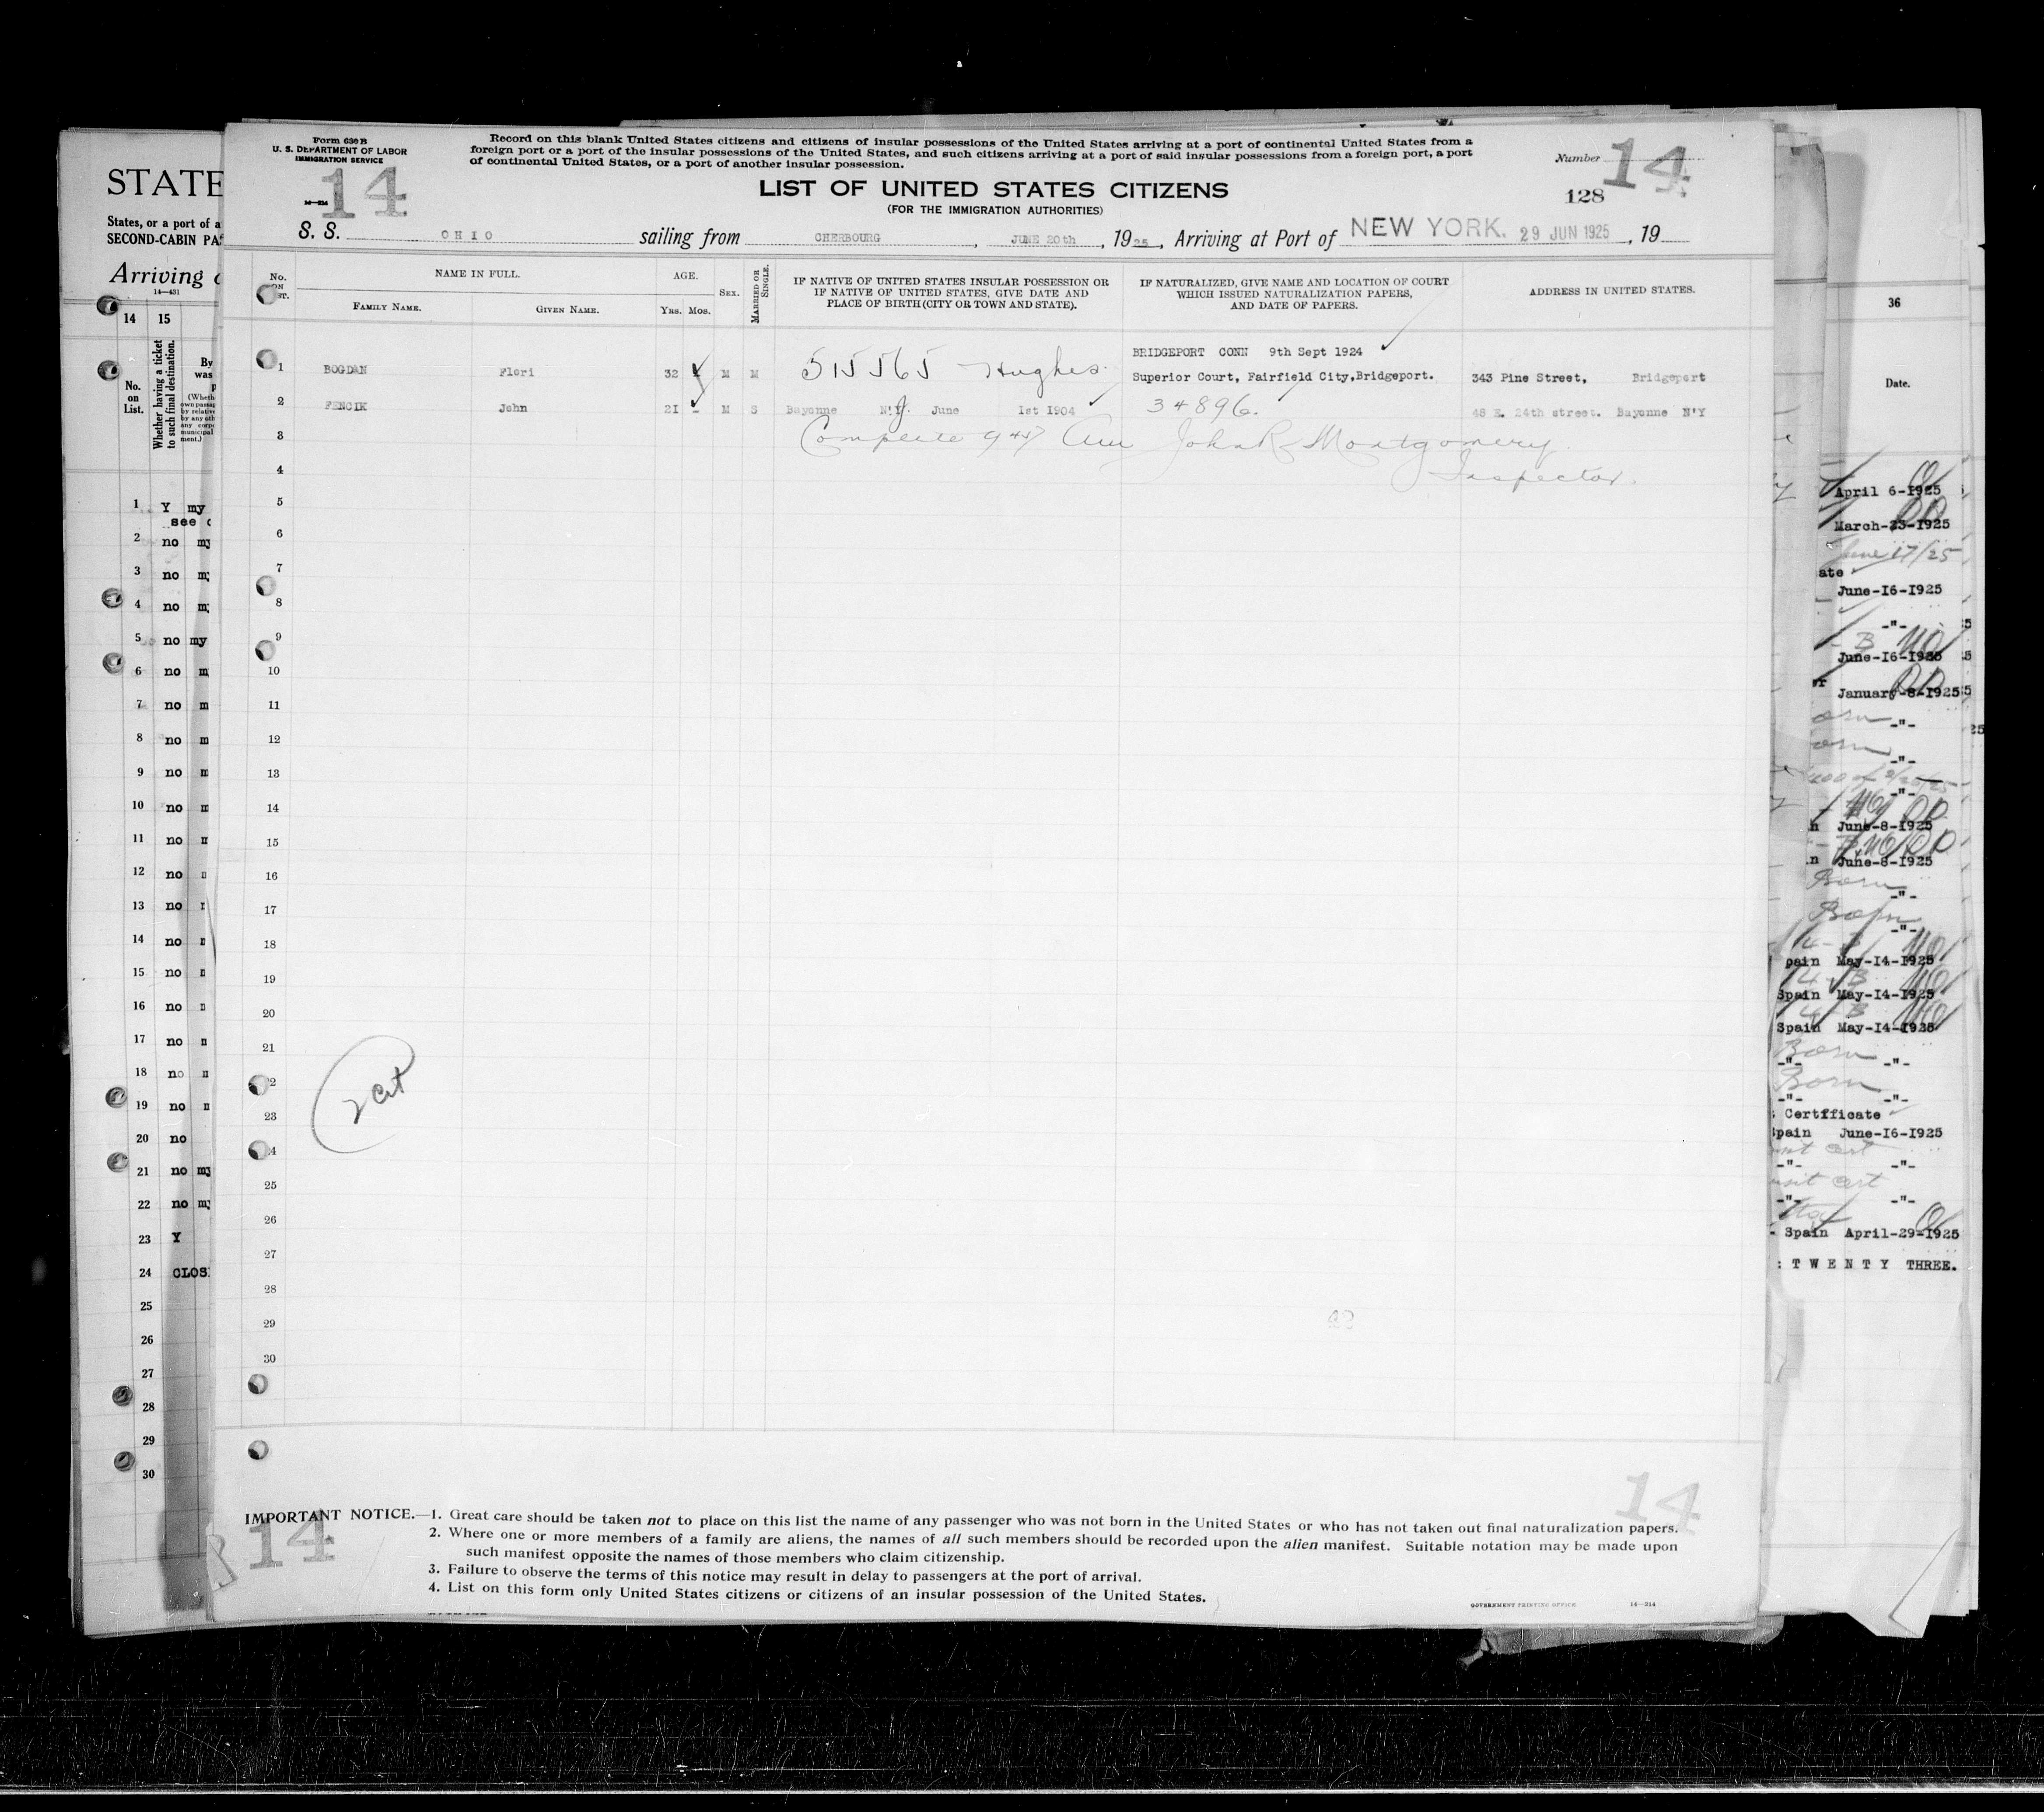 Form 630 B
U. S. DEPARTMENT OF LABOR
IMMIGRATION SERVICE
14
Record on this blank United States citizens and citizens of insular possessions of the United States arriving at a port of continental United States from a
foreign port or a port of the insular possessions of the United States, and such citizens arriving at a port of said insular possessions from a foreign port, a port
of continental United States, or a port of another insular possession.
Number 14
128
LIST OF UNITED STATES CITIZENS
(FOR THE IMMIGRATION AUTHORITIES)
S. S. OHIO sailing from CHERBOURG, JUNE 20th, 1925, Arriving at Port of NEW YORK. 29 JUN 1925, 19
No. ON LIST.
NAME IN FULL.
FAMILY NAME.
GIVEN NAME.
AGE.
YRS. MOS.
SEX.
MARRIED OR SINGLE.
IF NATIVE OF UNITED STATES INSULAR POSSESSION OR
IF NATIVE OF UNITED STATES, GIVE DATE AND
PLACE OF BIRTH (CITY OR TOWN AND STATE).
IF NATURALIZED, GIVE NAME AND LOCATION OF COURT
WHICH ISSUED NATURALIZATION PAPERS,
AND DATE OF PAPERS.
ADDRESS IN UNITED STATES.
BRIDGEPORT CONN 9th Sept 1924
1 BOGDAN Flori 32 M M 515565 Hughes Superior Court, Fairfield City,Bridgeport. 343 Pine Street, Bridgeport
2 FENCIK John 21 - M S Bayonne N.J. June 1st 1904 34896. 48 E. 24th street. Bayonne N'Y
3 Complete John R Montgomery
4 Inspector.
5
6
7
8
9
10
11
12
13
14
15
16
17
18
19
20
21
22
23
24
25
26
27
28
29
30
IMPORTANT NOTICE.—1. Great care should be taken not to place on this list the name of any passenger who was not born in the United States or who has not taken out final naturalization papers.
2. Where one or more members of a family are aliens, the names of all such members should be recorded upon the alien manifest. Suitable notation may be made upon
such manifest opposite the names of those members who claim citizenship.
3. Failure to observe the terms of this notice may result in delay to passengers at the port of arrival.
4. List on this form only United States citizens or citizens of an insular possession of the United States.
14
14
GOVERNMENT PRINTING OFFICE 14—314
STATE
States, or a port of a
SECOND-CABIN PA
Arriving
14—431
14 15
No. on List.
Whether having a ticket to such final destination.
1 Y my
see
2 no my
3 no m
4 no m
5 no my
6 no m
7 no m
8 no m
9 no m
10 no m
11 no
12 no
13 no
14 no
15 no
16 no
17 no
18 no
19 no
20 no
21 no my
22 no my
23 Y
24 CLOS
25
26
27
28
29
30
36
Date.
April 6-1925
March-23-1925
June 17/25
June-16-1925
-"-
June-16-1925
January-8-1925
-"-
-"-
-"-
June-8-1925
June-8-1925
Born -"-
Born -"-
pain May-14-1925
Spain May-14-1925
Spain May-14-1925
Born
-"- -"-
Born
-"- -"-
Certificate
pain June-16-1925
-"- -"-
-"- -"-
Spain April-29-1925
: T W E N T Y THREE.